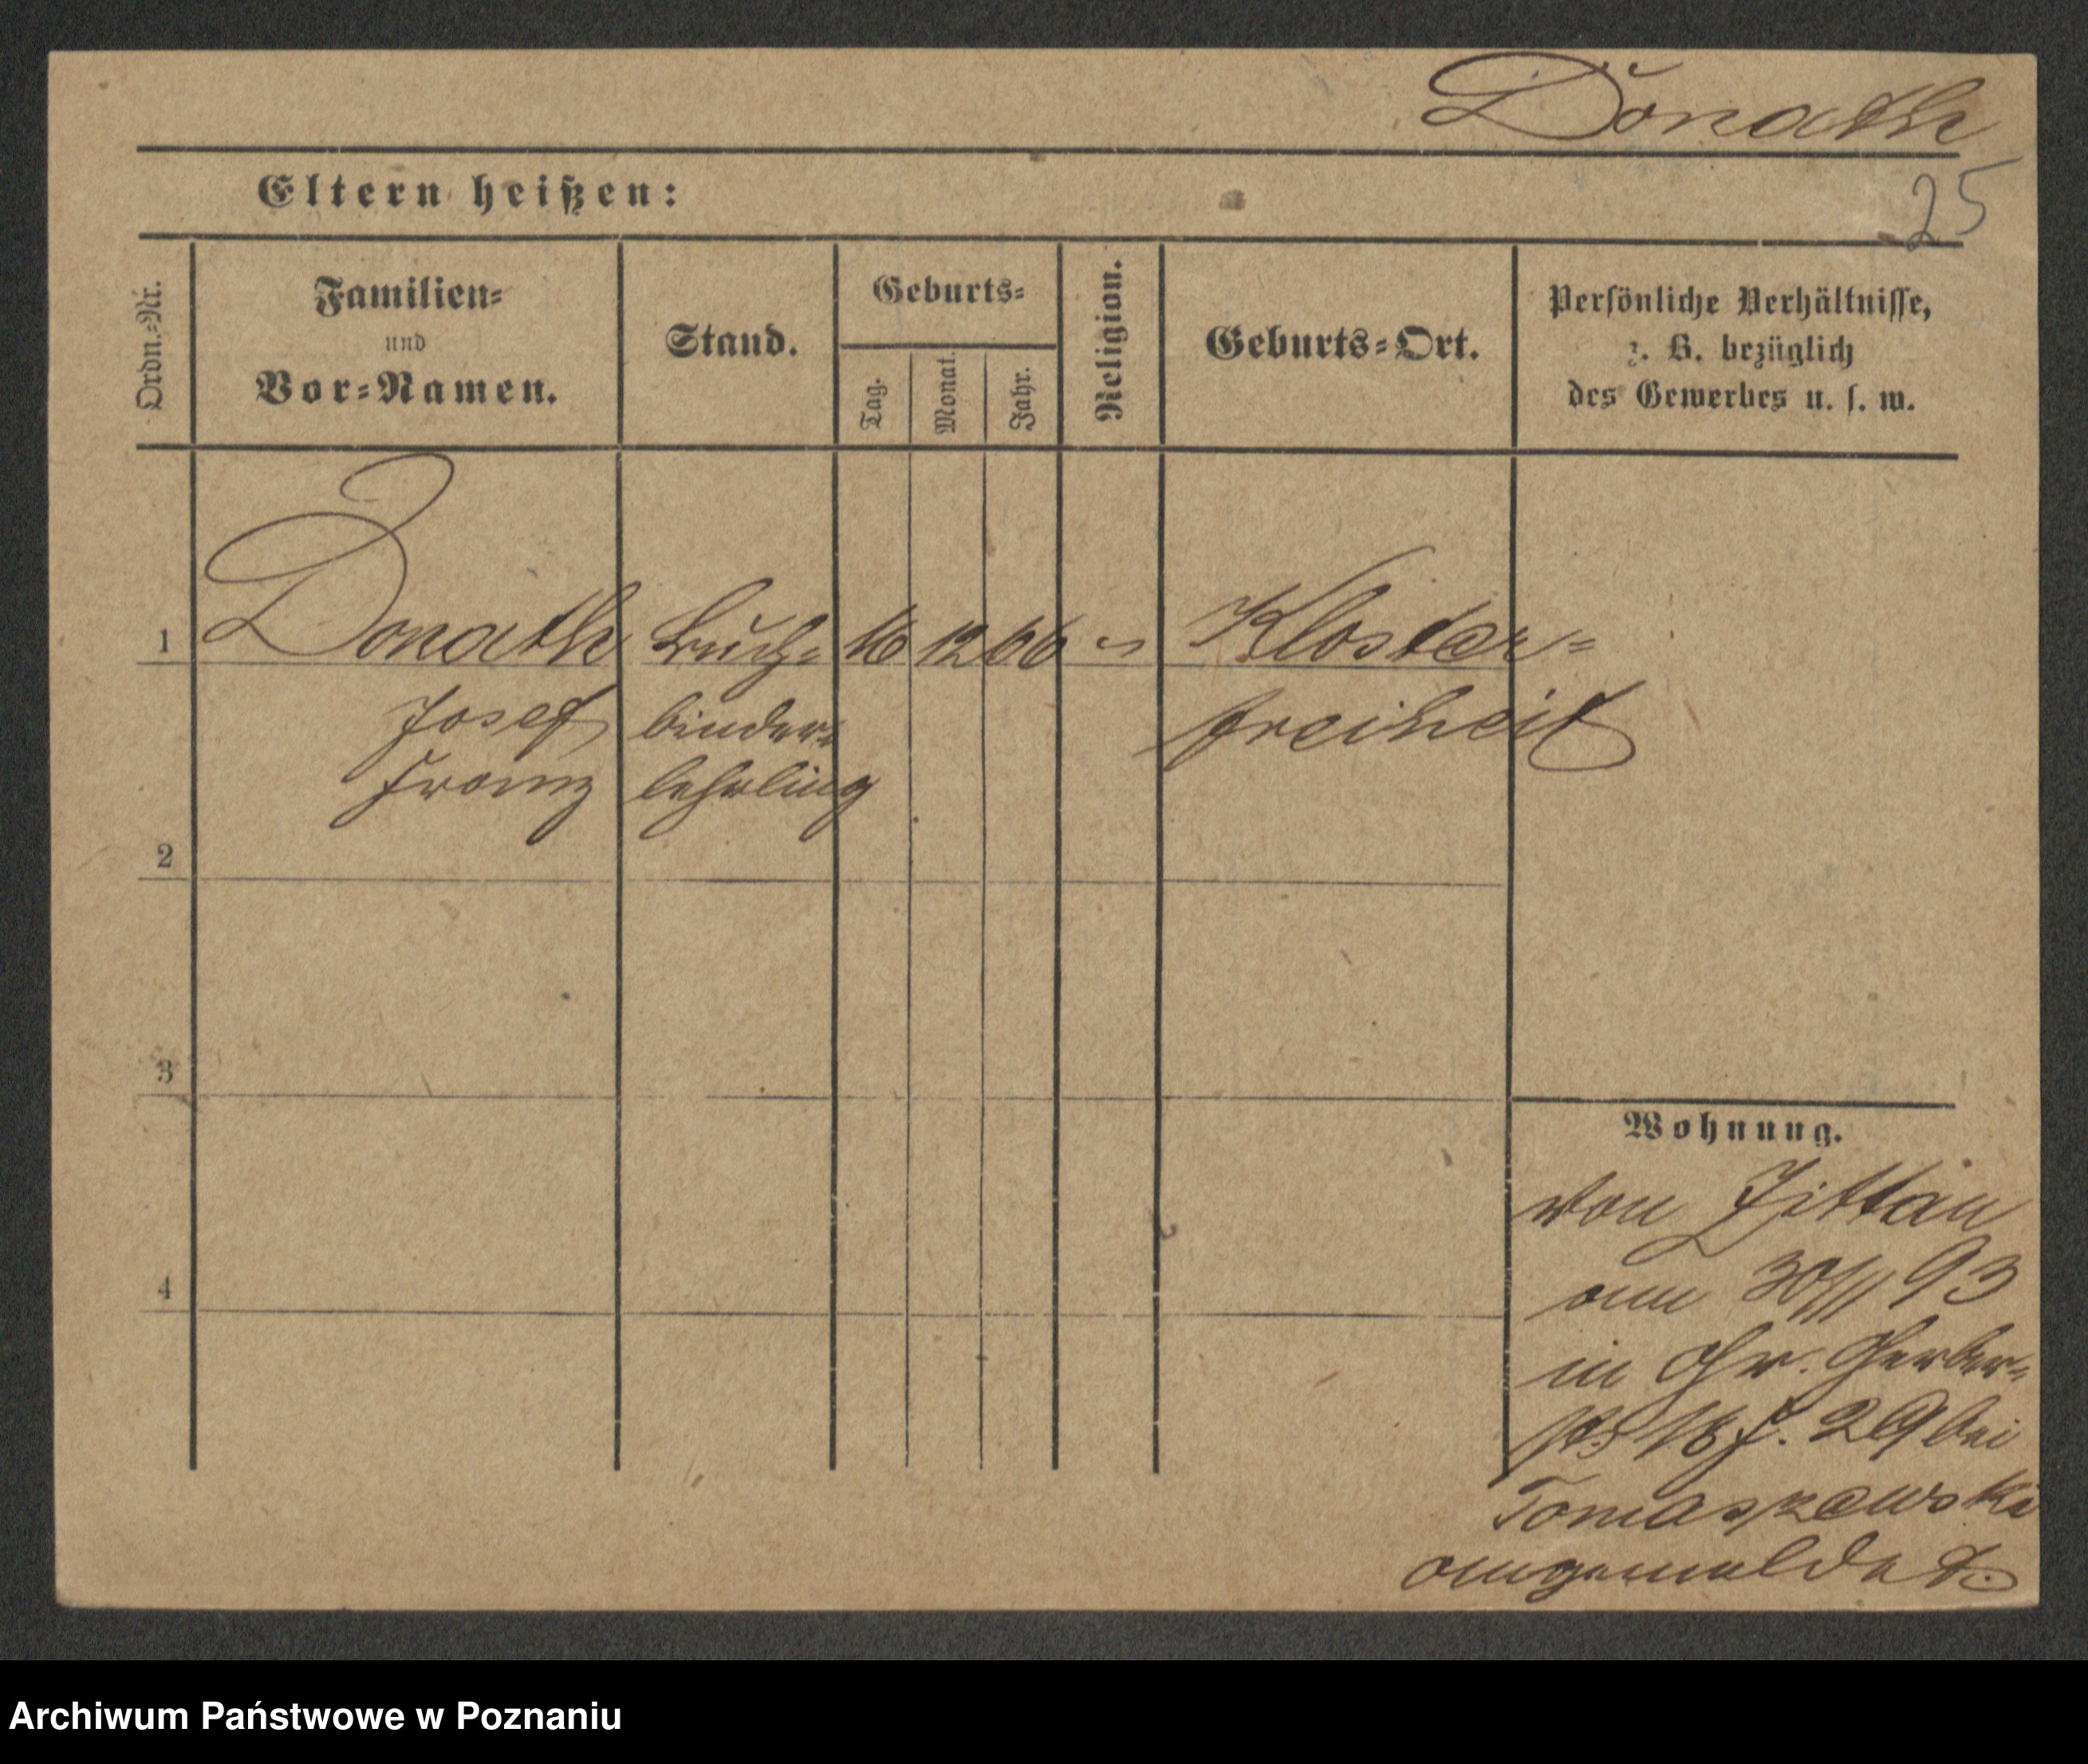 Donath
25
Eltern heißen:
Ordn.-Nr.
Familien-
und
Vor-Namen.
Stand.
Geburts-
Tag.
Monat.
Jahr.
Religion.
Geburts-Ort.
Persönliche Verhältnisse,
z. B. bezüglich
des Gewerbes u. s. w.
1 Donath Buch- 16 12 66 Kloster-
Josef binder- freiheit
Franz lehrling
2
3
4
Wohnung.
von Zittau
am 30/11 93
in Gr. Gerber-
29 bei
Tomaszewski
angemeldet.
Archiwum Państwowe w Poznaniu